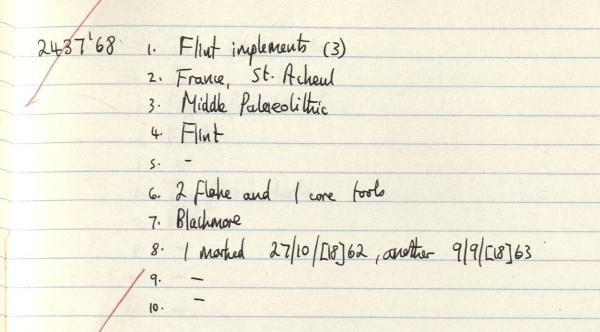 2437'68 1. Flint implements (3)
2. France, St. Acheul
3. Middle Palaeolithic
4. Flint
5. -
6. 2 flake and 1 core tools
7. Blackmore
8. 1 marked 27/10/[18]62, another 9/9/[18]63
9. -
10. -